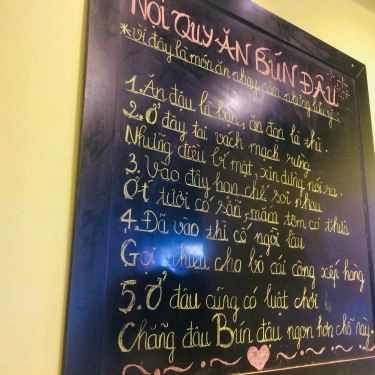 NỘI QUY ĂN BÚN ĐẬU
*Vì đây là món ăn nhạy cảm những lưu ý:
1. Ăn đậu là bạn, ăn đọn là thì.
2. Ở đây tai vách mạch rừng
Những điều bí mật, xin đừng nói ra.
3. Vào đây hạn chế soi nhau
Ớt tươi có sẵn, mắm tôm có thừa
4. Đã vào thì cố ngồi lâu
Gọi nhiều cho bõ cái công xếp hàng
5. Ở đâu cũng có luật chơi
Chẳng đâu Bún đậu ngon hơn chỗ này.